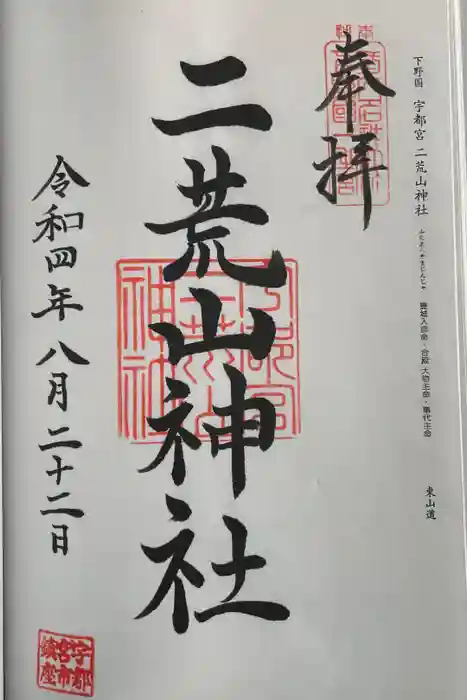 下野国 宇都宮 二荒山神社 ふたあらやまじんじゃ 豊城入彦命・合殿 大物主命・事代主命 東山道
奉拝
二荒山神社
令和四年八月二十二日
宇都宮市鎮座